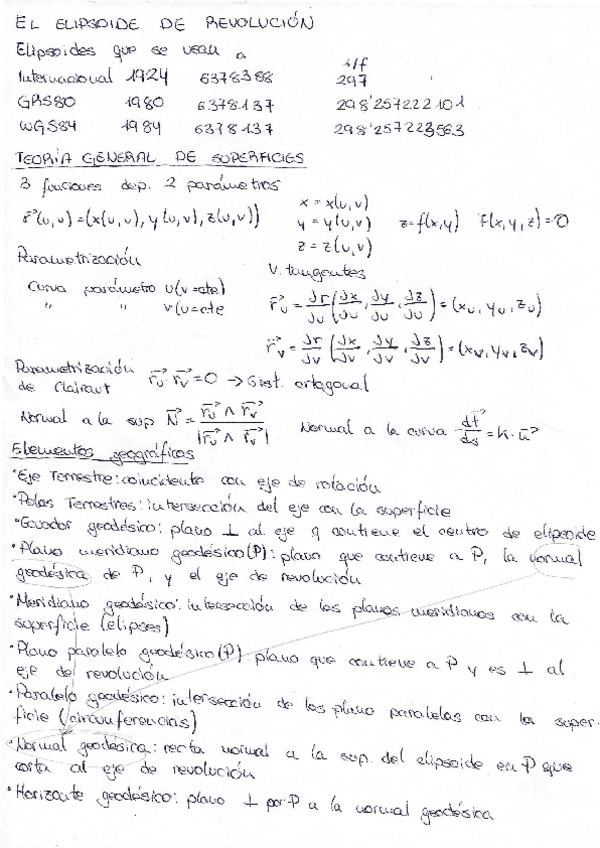 EL ELIPSOIDE DE REVOLUCIÓN
Elipsoides que se usan a 1/f
Internacional 1924 6378388 297
GRS80 1980 6378137 298'257222101
WGS84 1984 6378137 298'257223563
TEORÍA GENERAL DE SUPERFICIES
3 funciones dep. 2 parámetros
x = x(u,v)
r⃗(u,v) = (x(u,v), y(u,v), z(u,v)) y = y(u,v) z = f(x,y) F(x,y,z) = 0
z = z(u,v)
Parametrización V. tangentes
Curva parámetro u (v=cte) r⃗u = ∂r/∂u (∂x/∂u, ∂y/∂u, ∂z/∂u) = (xu, yu, zu)
" " v (u=cte
r⃗v = ∂r/∂v (∂x/∂v, ∂y/∂v, ∂z/∂v) = (xv, yv, zv)
Parametrización r⃗u r⃗v = 0 → Sist. ortogonal
de Clairaut
Normal a la sup N⃗ = r⃗u ∧ r⃗v / |r⃗u ∧ r⃗v| Normal a la curva dt⃗/ds = k·n⃗
Elementos geográficos
• Eje Terrestre: coincidente con eje de rotación
• Polos Terrestres: intersección del eje con la superficie
• Ecuador geodésico: plano ⊥ al eje q contiene el centro de elipsoide
• Plano meridiano geodésico (P): plano que contiene a P, la normal
geodésica de P, y el eje de revolución
• Meridiano geodésico: intersección de los planos meridianos con la
superficie (elipses)
• Plano paralelo geodésico (P) plano que contiene a P y es ⊥ al
eje de revolución
• Paralelo geodésico: intersección de los plano paralelas con la super-
ficie (circunferencias)
• Normal geodésica: recta normal a la sup. del elipsoide en P que
corta al eje de revolución
• Horizonte geodésico: plano ⊥ por P a la normal geodésica